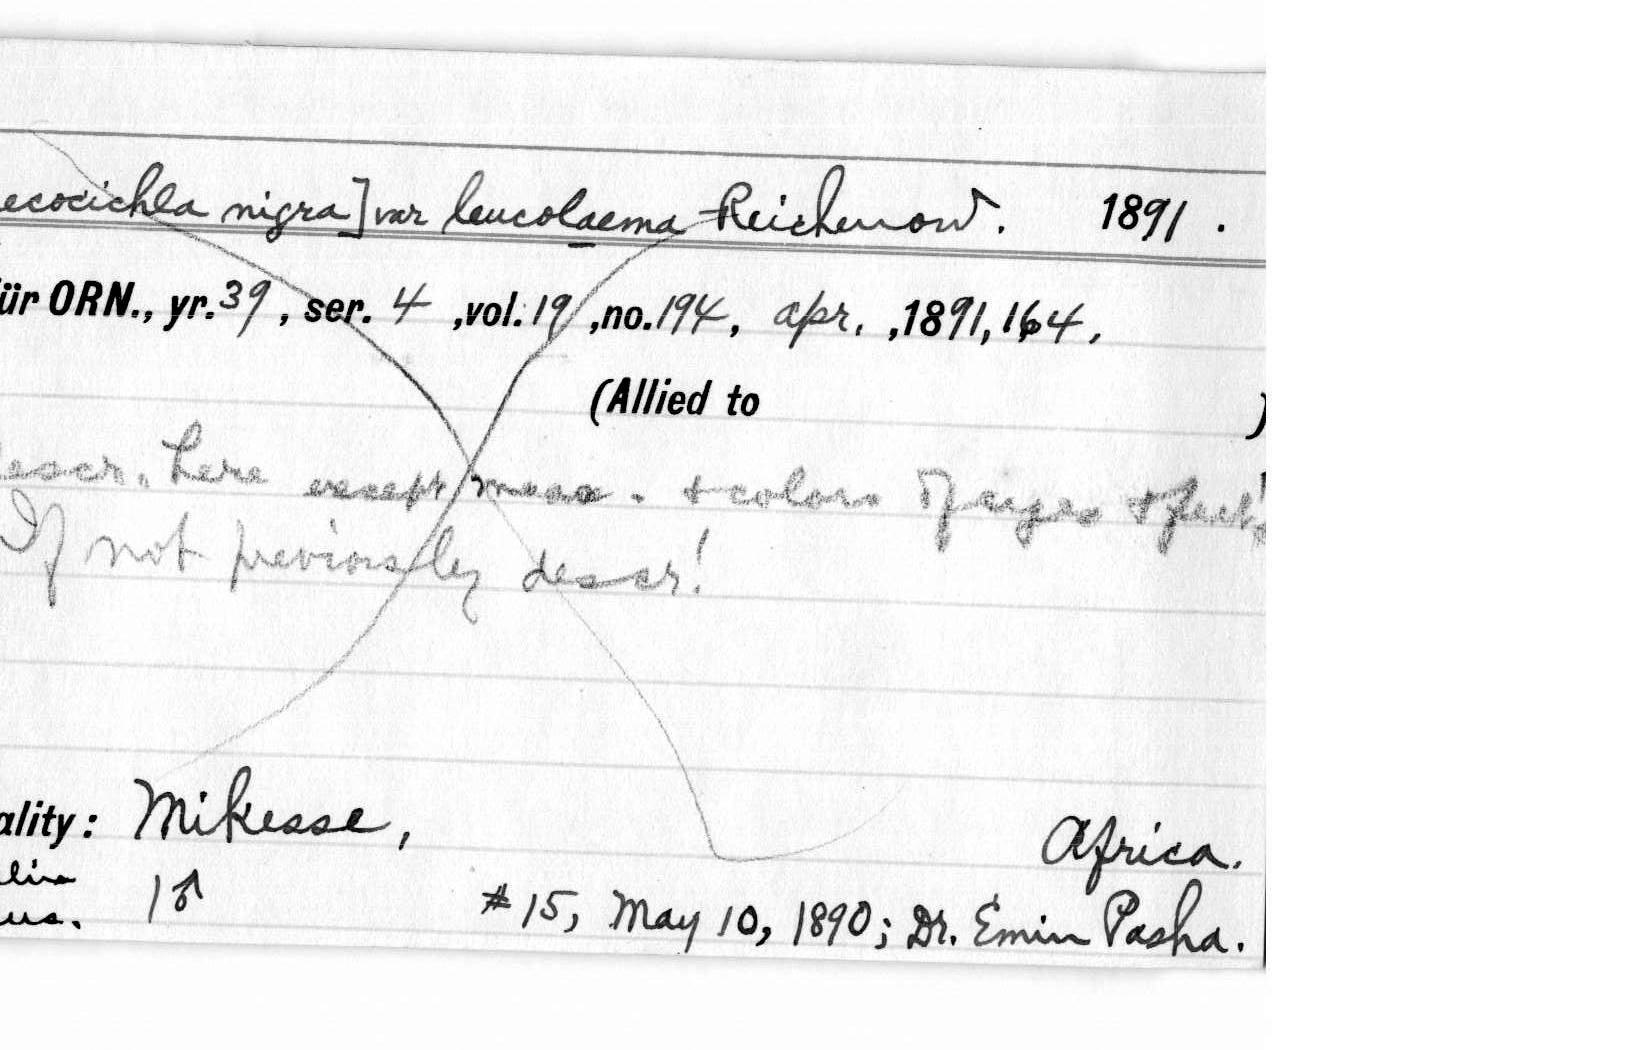 ecocichla nigra] var leucolaema Reichenow. 1891.
ür ORN., yr. 39, ser. 4, vol. 19, no. 194, apr., 1891, 164,
(Allied to )
escr. here except meas. & colors of eyes & feet!
If not previously descr!
ality: Mikesse, Africa.
lin
us. 1♂ #15, May 10, 1890; Dr. Emin Pasha.